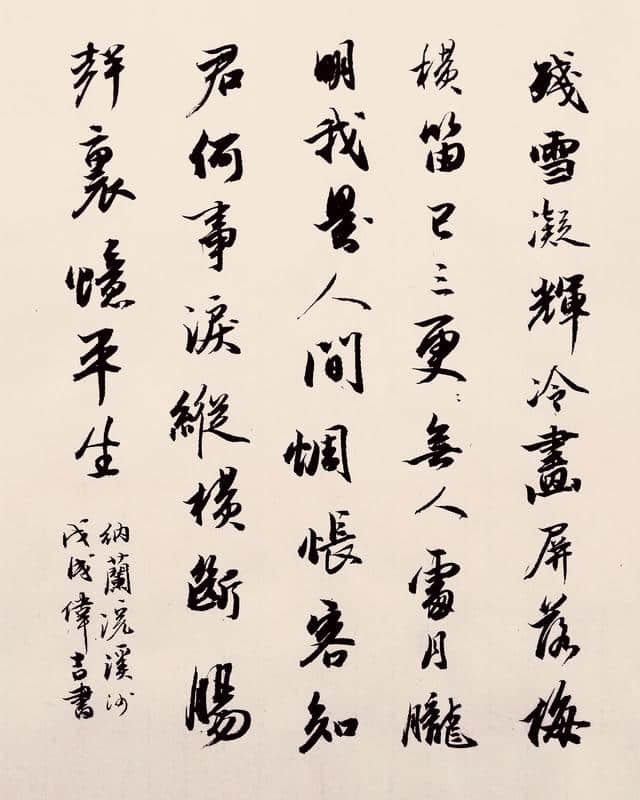 殘雪凝輝冷畫屏落梅
橫笛已三更〻無人處月朧
明我是人間惆悵客知
君何事淚縱橫斷腸
聲裏憶平生
納蘭浣溪沙
戊戌偉吉書